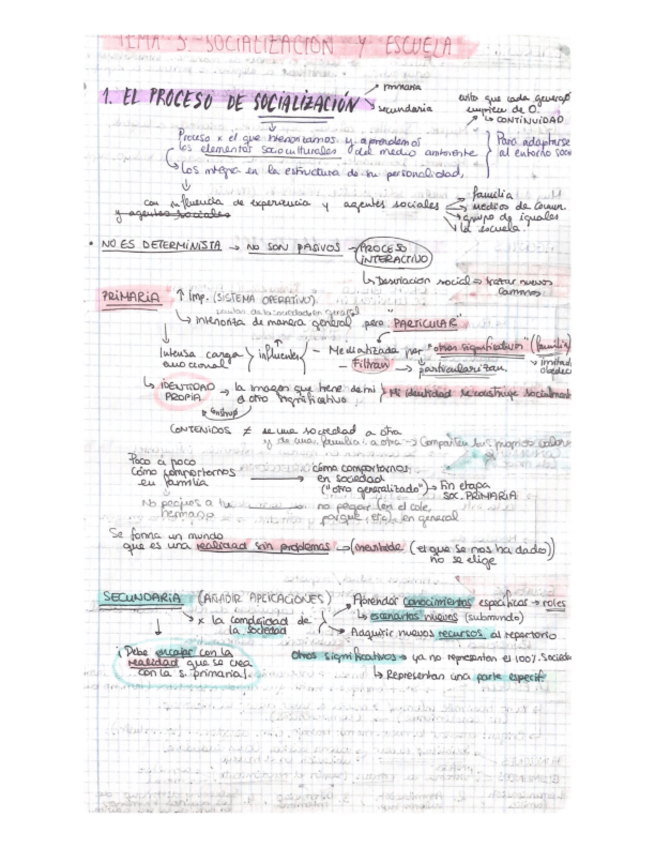 TEMA 3. SOCIALIZACIÓN Y ESCUELA
1. EL PROCESO DE SOCIALIZACIÓN
→ primaria
→ secundaria
evita que cada generac
empiece de 0.
↳ CONTINUIDAD
Proceso x el que interiorizamos y aprendemos
los elementos socioculturales del medio ambiente
↳ Los integra en la estructura de su personalidad,
Para adaptarse
al entorno soci
con influencia de experiencia y agentes sociales
y agentes sociales
familia
medios de comun.
grupo de iguales
la escuela
• NO ES DETERMINISTA → NO SON PASIVOS → PROCESO
INTERACTIVO
↳ Desviación social → tratar nuevos
caminos
PRIMARIA ↑ Imp. (SISTEMA OPERATIVO)
de la sociedad en general
↳ interioriza de manera general pero "PARTICULAR"
Intensa carga
emocional
influentes
- Mediatizada por "otros significativos" (familia)
- Filtran → particularizan.
↳ IDENTIDAD
PROPIA → la imagen que tiene de mi
el otro significativo
Mi identidad se construye socialment
CONTENIDOS ≠ de una sociedad a otra
y de una familia a otra → Comparten sus propios valores
Poco a poco
cómo comportarnos
en familia
→ cómo comportarnos
en sociedad
("otro generalizado") → Fin etapa
SOC. PRIMARIA
No pegues a tu
hermano
→ no pegar (en el cole,
parque, etc) en general
Se forma un mundo
que es una realidad sin problemas → (el que se nos ha dado)
no se elige
SECUNDARIA (AÑADIR APLICACIONES)
→ x la complejidad de
la sociedad
Aprender conocimientos específicos → roles
↳ escenarios nuevos (submundo)
Adquirir nuevos recursos al repertorio
¡Debe encajar con la
realidad que se crea
con la s. primaria!
Otros significativos → ya no representan el 100% Socieda
↳ Representan una parte específ.